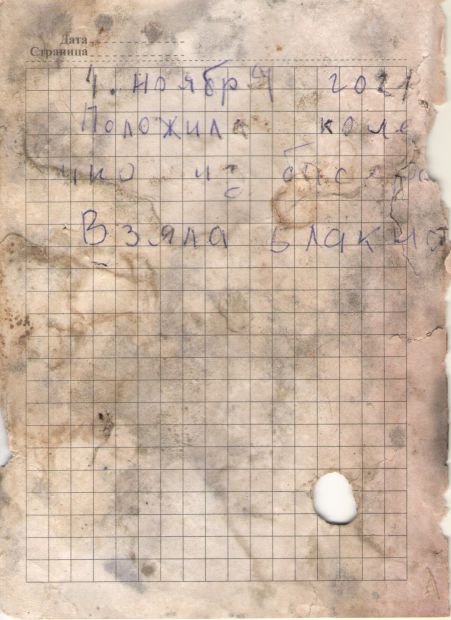 Дата
Страница
4. ноября 2021
Положила коле
чко из бисера
Взяла блакнот